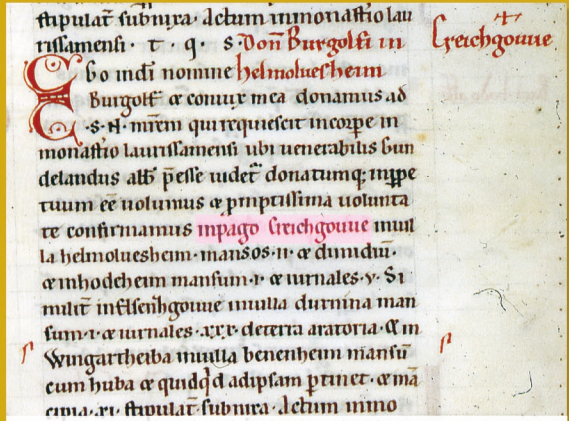 stipulat subnixa. Actum in monasterio lau
rissamensi. t. q. s. Don Burgolfi in
Creichgouue
Ego in di nomine helmoluesheim
Burgolf & coniux mea donamus ad
.S.N. mrem qui requiescit in corpe in
monastio laurissamensi ubi uenerabilis Gun
delandus abb pesse uidet donatumq; inppe
tuum eē uolumus & pmptissima uolunta
te confirmamus inpago Creichgouue inuil
la helmoluesheim. mansos. ii. & dimidiū.
& inhodeheim mansum. i. & iurnales. v. Si
milit in Elsenhgouue inuilla durnina man
sum. i. & iurnales. xxx. de terra aratoria. & in
Wingartheiba inuilla benenheim mansū
cum huba & quidqd adipsam ptinet. & mā
cipia. xi. stipulat subnixa. Actum in mo